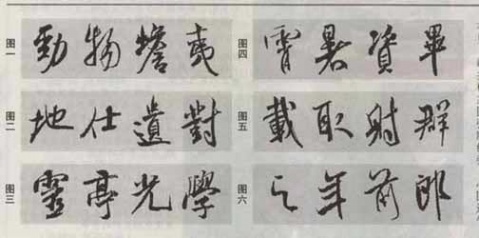 图一 劲物檐夷
图二 地仕遗對
图三 靈亭光學
图四 霄暑資畢
图五 載取射群
图六 之年前郎